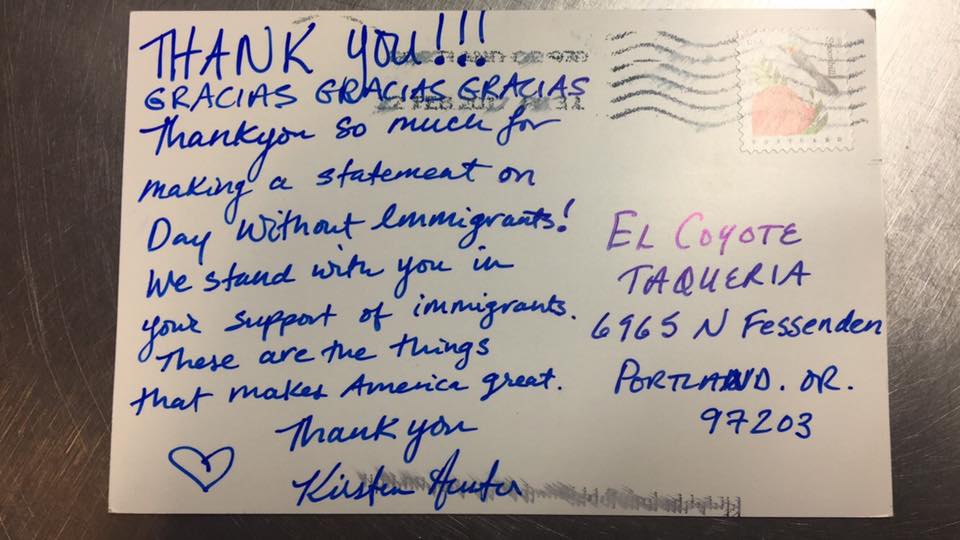 THANK YOU!!!
GRACIAS GRACIAS GRACIAS
Thankyou so much for
making a statement on
Day Without Immigrants!
We stand with you in
your support of immigrants.
These are the things
that makes America great.
Thank you
Kirsten
EL COYOTE
TAQUERIA
6965 N Fessenden
PORTLAND. OR.
97203